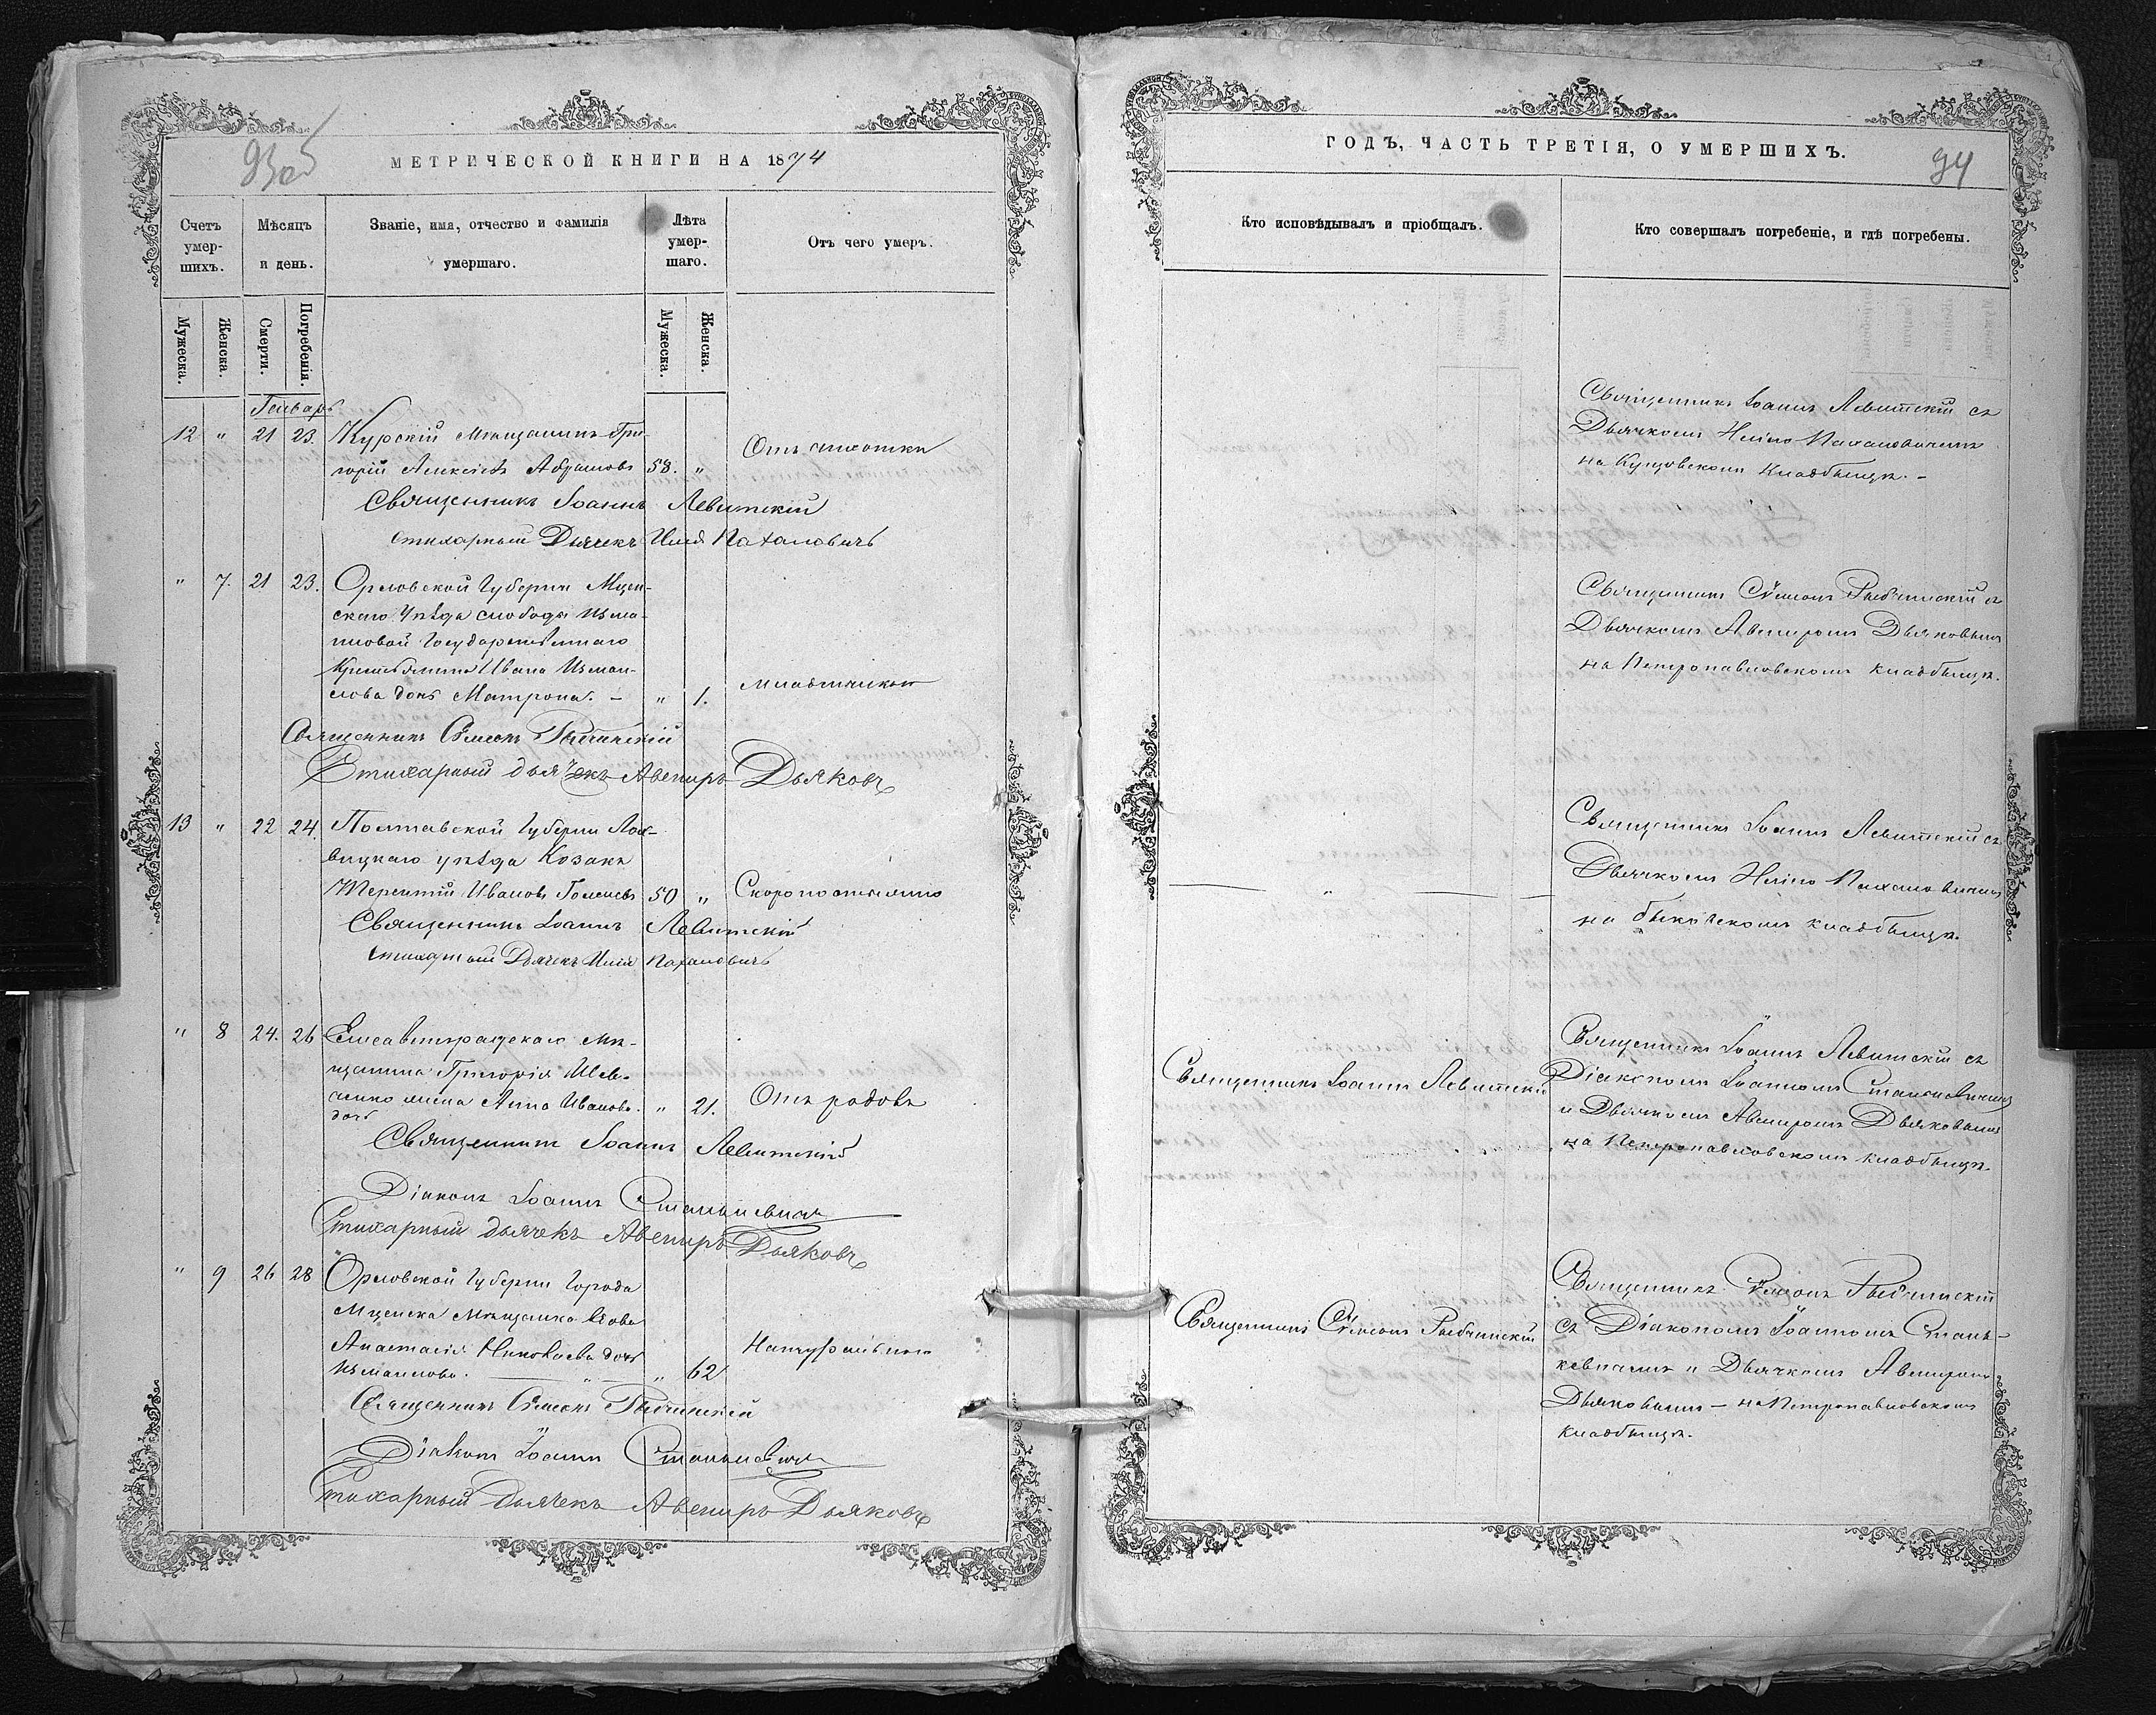 93об
МЕТРИЧЕСКОЙ КНИГИ НА 1874
Счетъ умер-шихъ.
Мѣсяцъ и день.
Званіе, имя, отчество и фамилія умершаго.
Лѣта умер-шаго.
Отъ чего умеръ.
Мужеска.
Женска.
Смерти.
Погребенія.
Мужеска.
Женска.
Генварь
12 " 21 23. Курскій Мѣщанинъ Гри-
горій Алексѣевъ Абрамовъ 58. " Отъ чихотки
Священникъ Іоаннъ Левитскій
Стихарный Дьячекъ Илія Пахаловичъ
" 7. 21 23. Орловской Губерніи Мцен-
скаго Уѣзда слободы Измаи-
ловой Государственнаго
Крестьянина Ивана Измаи-
лова дочь Матрона. – " 1. младенческой
Священникъ Сѵмеонъ Рыбчинскій
Стихарный дьячекъ Авениръ Дьяковъ
13 " 22 24. Полтавской Губерніи Лох-
вицкаго уѣзда Козакъ
Терентій Ивановъ 50 " Скоропостижно
Священникъ Іоаннъ Левитскій
Стихарный Дьячекъ Илія Пахаловичъ
" 8 24. 26 Елисаветградскаго Мѣ-
щанина Григорія Шев-
ченко жена Анна Иванова " 21. Отъ родовъ
дочь
Священникъ Іоаннъ Левитскій
Діаконъ Іоаннъ Станкевичъ
Стихарный дьячекъ Авениръ Дьяковъ
" 9 26 28 Орловской Губерніи Города
Мценска Мѣщанка Вдова
Анастасія Николаева дочь
Измаилова. " " 62 Натурально
Священникъ Сѵмеонъ Рыбчинскій
Діаконъ Іоаннъ Станкевичъ
Стихарный Дьячекъ Авениръ Дьяковъ
ГОДЪ, ЧАСТЬ ТРЕТІЯ, О УМЕРШИХЪ.
94
Кто исповѣдывалъ и пріобщалъ.
Кто совершалъ погребеніе, и гдѣ погребены.
Священникъ Іоаннъ Левитскій съ
Дьячкомъ Иліею Пахаловичемъ
на кладбищѣ. –
Священникъ Сѵмеонъ Рыбчинскій съ
Дьячкомъ Авениромъ Дьяковымъ
на Петропавловскомъ кладбищѣ.
Священникъ Іоаннъ Левитскій съ
Дьячкомъ Иліею Пахаловичемъ
"
на кладбищѣ.
Священникъ Іоаннъ Левитскій съ
Священникъ Іоаннъ Левитскій
Діакономъ Іоанномъ Станкевичемъ
и Дьячкомъ Авениромъ Дьяковымъ
на Петропавловскомъ кладбищѣ.
Священникъ Сѵмеонъ Рыбчинскій
Священникъ Сѵмеонъ Рыбчинскій
съ Діакономъ Іоанномъ Стан-
кевичемъ и Дьячкомъ Авениромъ
Дьяковымъ – на Петропавловскомъ
кладбищѣ.